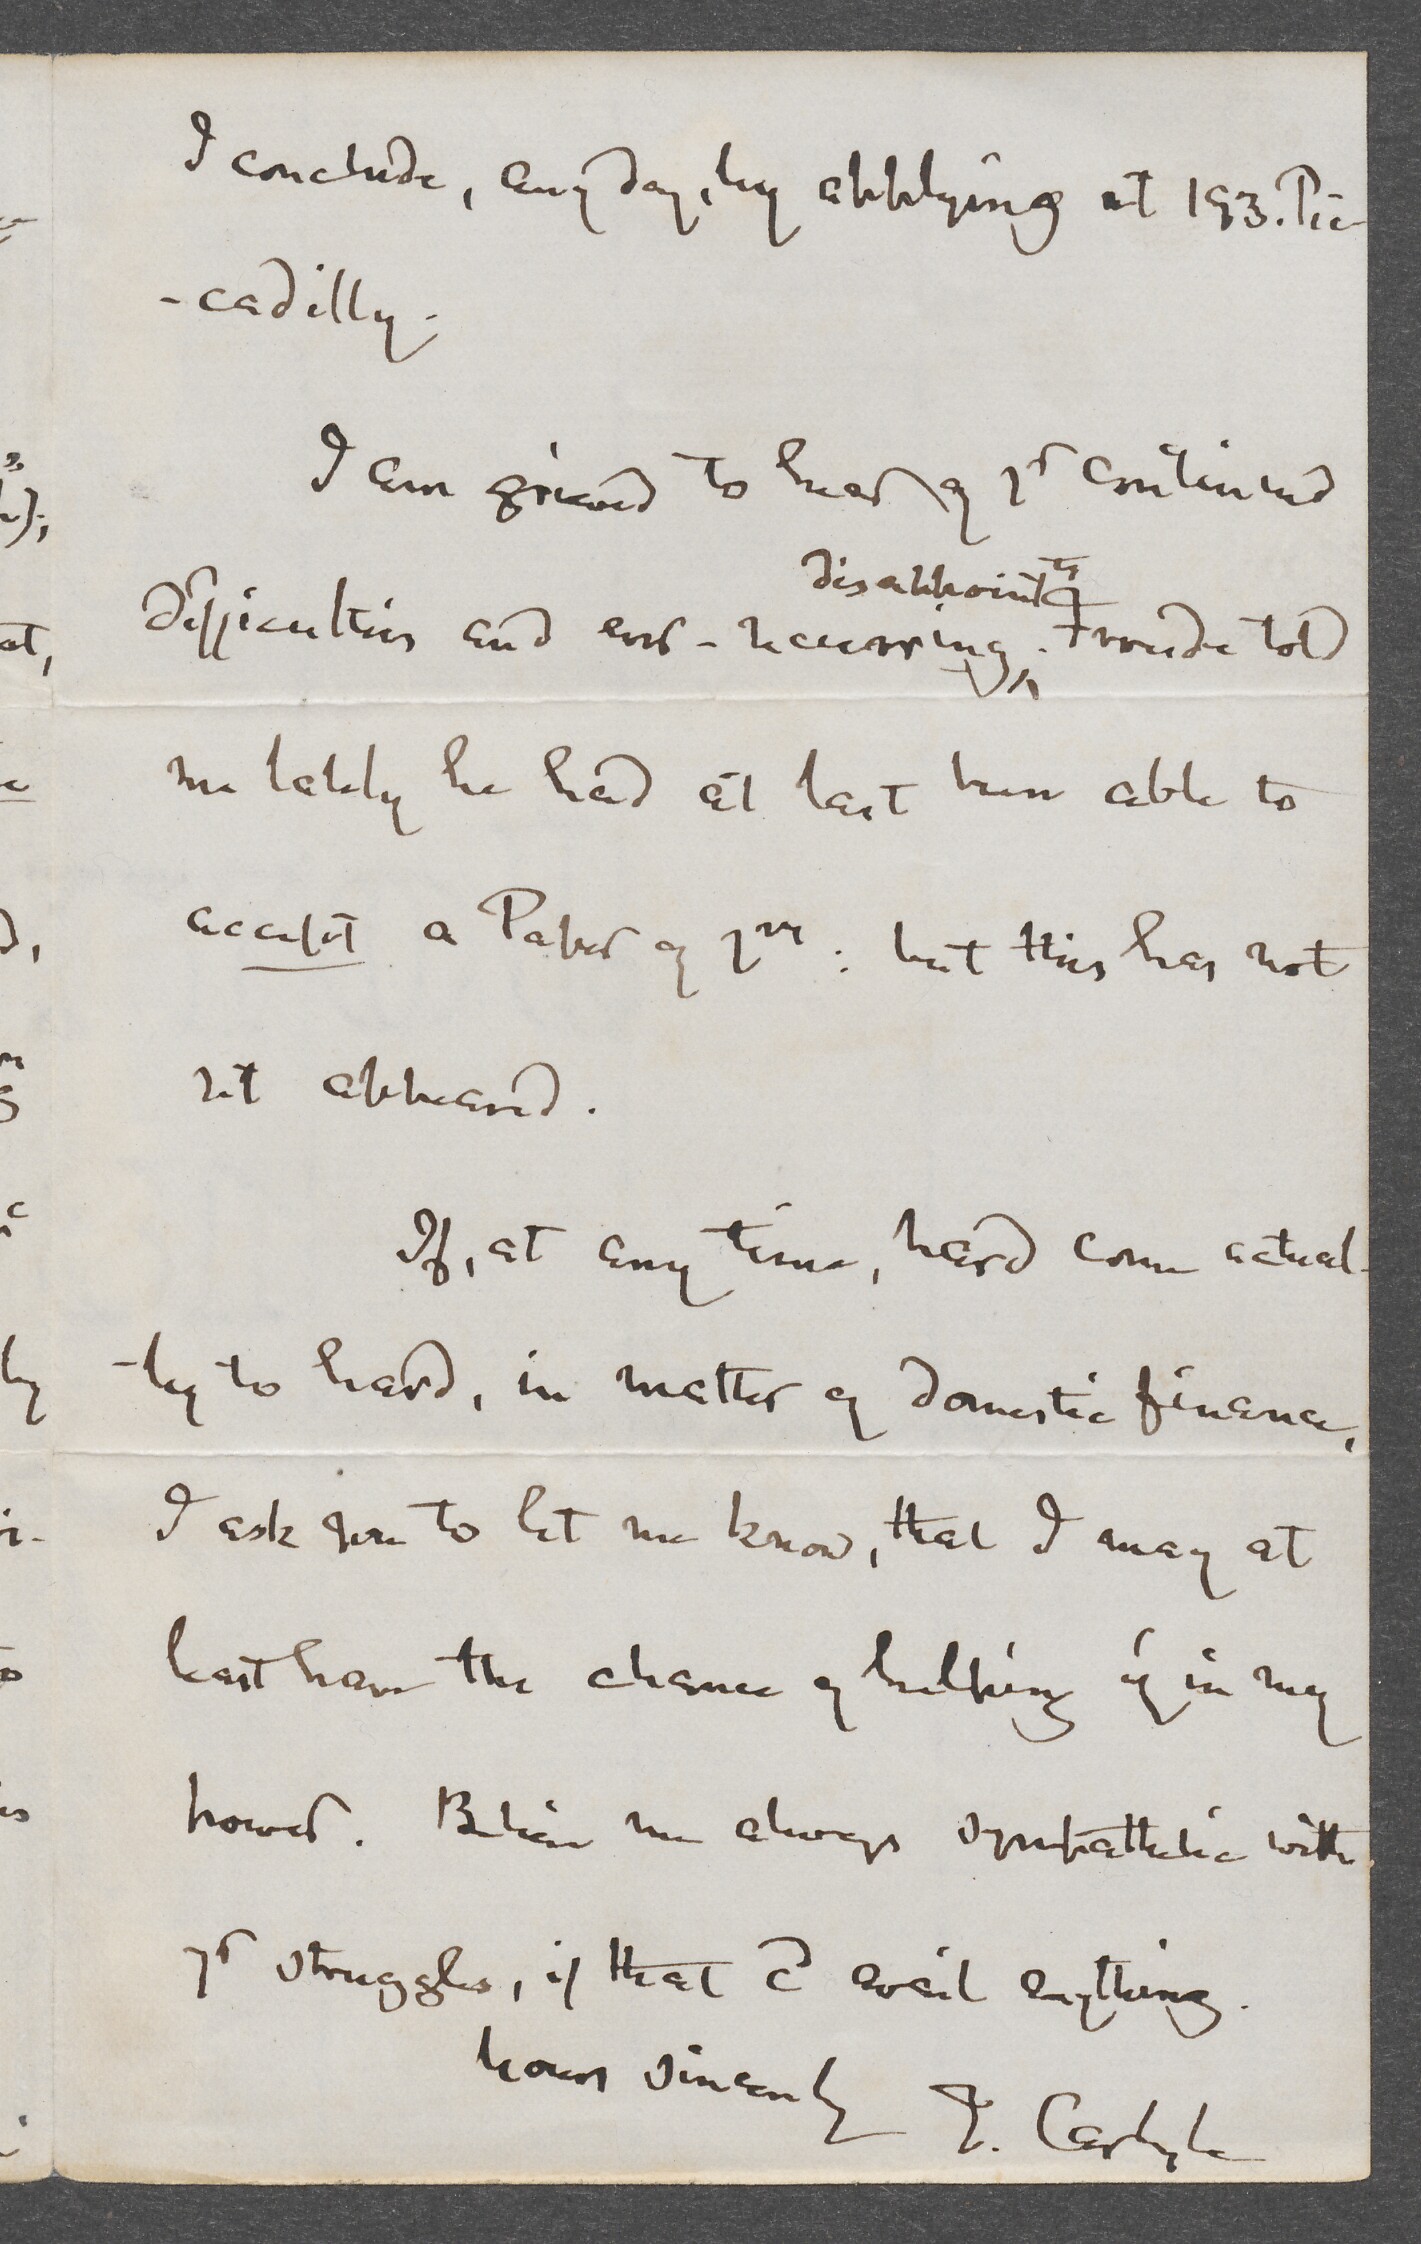 I conclude, any day, by applying at 193. Pic-
-cadilly.
I am grieved to hear of yr continued
disappointts
difficulties and ever-recurring. Froude told
me lately he had at last been able to
accept a Paper of yrs: but this has not
yet appeared.
If, at any time, hard come actual-
-ly to hard, in matter of domestic finance,
I ask you to let me know, that I may at
least have the chance of helping if in my
power. Believe me always sympathetic with
yr struggles, if that cd avail anything.
Yours sincerely T. Carlyle